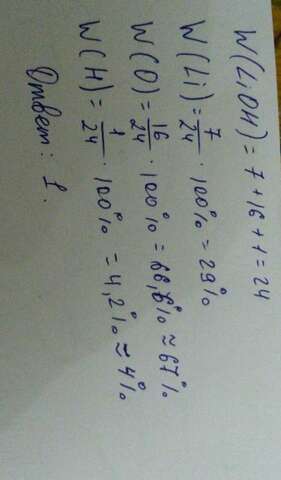 W(LiOH) = 7 + 16 + 1 = 24
W(Li) = 7/24 · 100% = 29%
W(O) = 16/24 · 100% = 66,6% ≈ 67%
W(H) = 1/24 · 100% = 4,2% ≈ 4%
Ответ: 1.